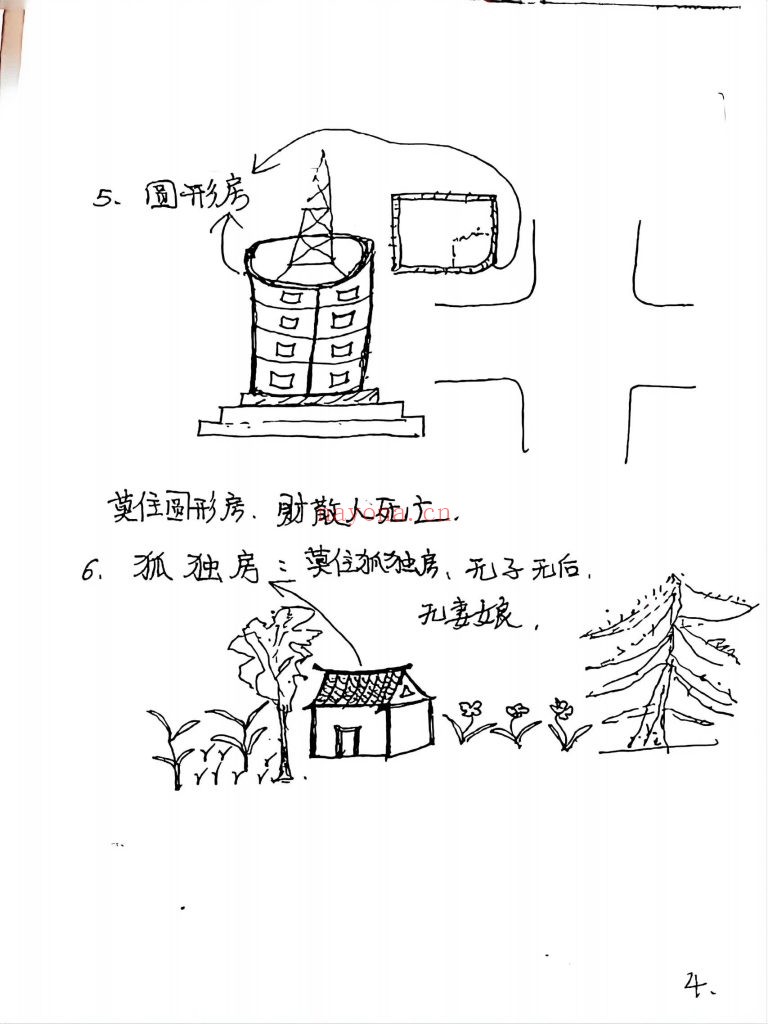 5. 圆形房
莫住圆形房、财散人死亡.
nayona.cn
6. 孤独房：莫住孤独房、无子无后.
无妻娘.
4.